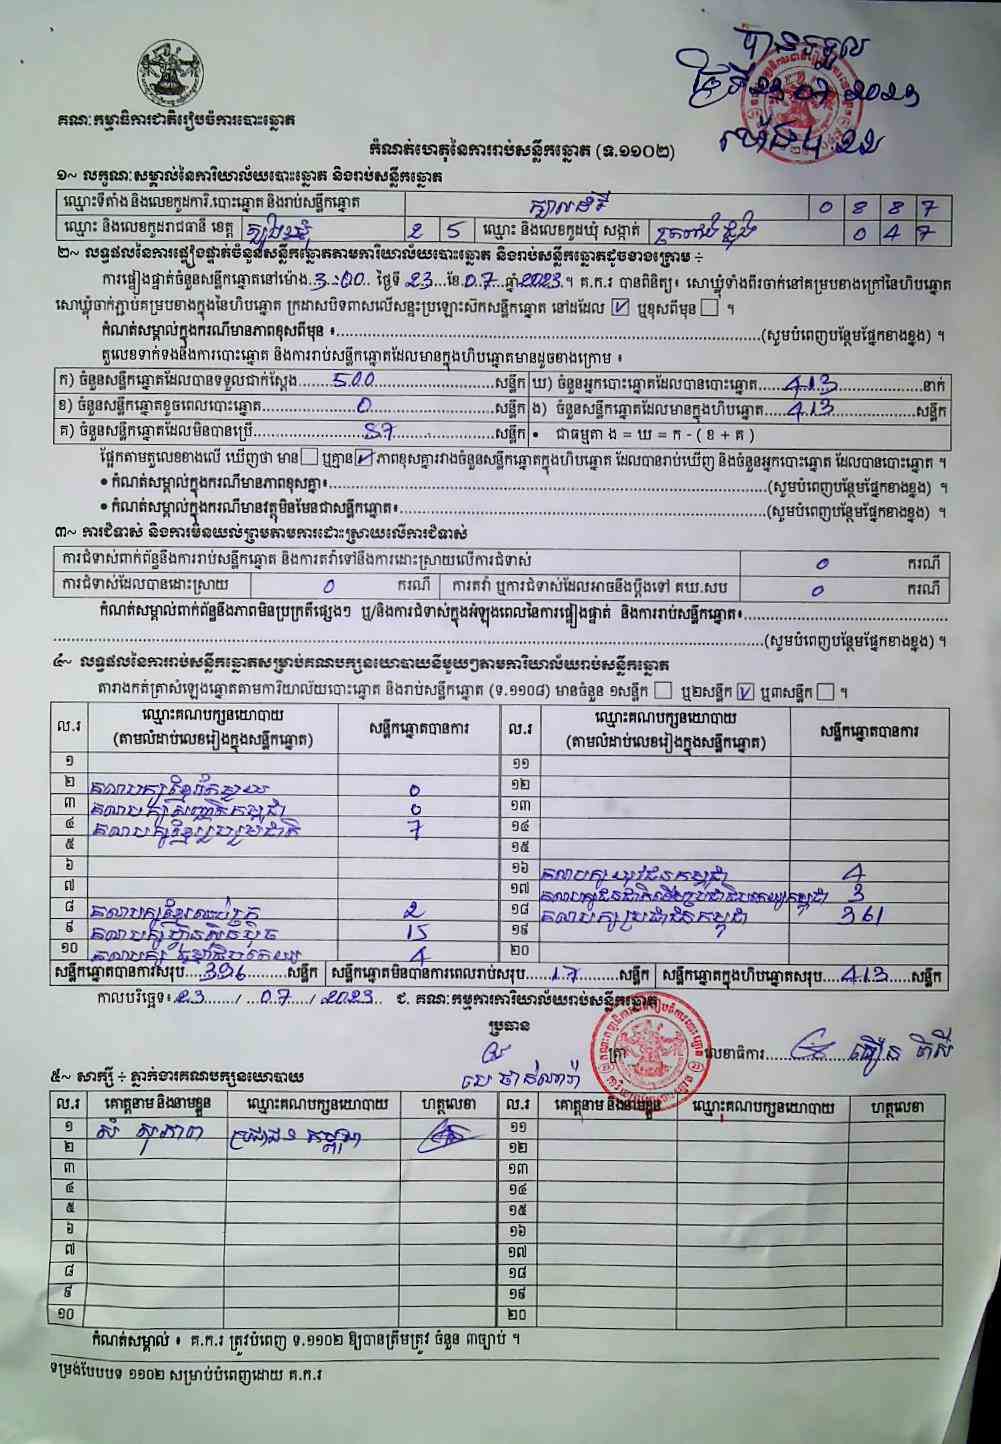 គណៈកម្មាធិការជាតិរៀបចំការបោះឆ្នោត
បានទទួល
ថ្ងៃទី23 07 2023
ម៉ោង 4:22
កំណត់ហេតុនៃការរាប់សន្លឹកឆ្នោត (ទ.១១០២)
១~ លក្ខណៈសម្គាល់នៃការិយាល័យបោះឆ្នោត និងរាប់សន្លឹកឆ្នោត
ឈ្មោះទីតាំង និងលេខកូដការិ.បោះឆ្នោត និងរាប់សន្លឹកឆ្នោត 0 8 8 7
ឈ្មោះ និងលេខកូដរាជធានី ខេត្ត ត្បូងឃ្មុំ 2 5 ឈ្មោះ និងលេខកូដឃុំ សង្កាត់ 0 4 7
២~ លទ្ធផលនៃការផ្ទៀងផ្ទាត់ចំនួនសន្លឹកឆ្នោតតាមការិយាល័យបោះឆ្នោត និងរាប់សន្លឹកឆ្នោតដូចខាងក្រោម ÷
ការផ្ទៀងផ្ទាត់ចំនួនសន្លឹកឆ្នោតនៅម៉ោង 3:00 ថ្ងៃទី 23 ខែ 07 ឆ្នាំ 2023 ។ គ.ក.រ បានពិនិត្យ៖ សោឃ្លុំទាំងពីរចាក់នៅគម្របខាងក្រៅនៃហិបឆ្នោត
សោឃ្លុំចាក់ភ្ជាប់គម្របខាងក្នុងនៃហិបឆ្នោត ក្រដាសបិទពាសលើសន្ទះប្រឡោះសិកសន្លឹកឆ្នោត នៅដដែល ☑ ឬខុសពីមុន ☐ ។
កំណត់សម្គាល់ក្នុងករណីមានភាពខុសពីមុន ៖ (សូមបំពេញបន្ថែមផ្នែកខាងខ្នង) ។
តួលេខទាក់ទងនឹងការបោះឆ្នោត និងការរាប់សន្លឹកឆ្នោតដែលមានក្នុងហិបឆ្នោតមានដូចខាងក្រោម ៖
ក) ចំនួនសន្លឹកឆ្នោតដែលបានទទួលជាក់ស្តែង 500 សន្លឹក ឃ) ចំនួនអ្នកបោះឆ្នោតដែលបានបោះឆ្នោត 413 នាក់
ខ) ចំនួនសន្លឹកឆ្នោតខូចពេលបោះឆ្នោត 0 សន្លឹក ង) ចំនួនសន្លឹកឆ្នោតដែលមានក្នុងហិបឆ្នោត 413 សន្លឹក
គ) ចំនួនសន្លឹកឆ្នោតដែលមិនបានប្រើ 87 សន្លឹក • ជាធម្មតា ង = ឃ = ក - ( ខ + គ )
ផ្អែកតាមតួលេខខាងលើ ឃើញថា មាន ☐ ឬគ្មាន ☑ ភាពខុសគ្នារវាងចំនួនសន្លឹកឆ្នោតក្នុងហិបឆ្នោត ដែលបានរាប់ឃើញ និងចំនួនអ្នកបោះឆ្នោត ដែលបានបោះឆ្នោត ។
• កំណត់សម្គាល់ក្នុងករណីមានភាពខុសគ្នា៖ (សូមបំពេញបន្ថែមផ្នែកខាងខ្នង) ។
• កំណត់សម្គាល់ក្នុងករណីមានវត្ថុមិនមែនជាសន្លឹកឆ្នោត៖ (សូមបំពេញបន្ថែមផ្នែកខាងខ្នង) ។
៣~ ការជំទាស់ និងការមិនយល់ព្រមតាមការដោះស្រាយលើការជំទាស់
ការជំទាស់ពាក់ព័ន្ធនឹងការរាប់សន្លឹកឆ្នោត និងការតវ៉ាទៅនឹងការដោះស្រាយលើការជំទាស់ 0 ករណី
ការជំទាស់ដែលបានដោះស្រាយ 0 ករណី ការតវ៉ា ឬការជំទាស់ដែលអាចនឹងប្តឹងទៅ គឃ.សប 0 ករណី
កំណត់សម្គាល់ពាក់ព័ន្ធនឹងភាពមិនប្រក្រតីផ្សេងៗ ឬ/និងការជំទាស់ក្នុងអំឡុងពេលនៃការផ្ទៀងផ្ទាត់ និងការរាប់សន្លឹកឆ្នោត៖
(សូមបំពេញបន្ថែមផ្នែកខាងខ្នង) ។
៤~ លទ្ធផលនៃការរាប់សន្លឹកឆ្នោតសម្រាប់គណបក្សនយោបាយនីមួយៗតាមការិយាល័យរាប់សន្លឹកឆ្នោត
តារាងកត់ត្រាសំឡេងឆ្នោតតាមការិយាល័យបោះឆ្នោត និងរាប់សន្លឹកឆ្នោត (ទ.១១០៨) មានចំនួន ១សន្លឹក ☐ ឬ២សន្លឹក ☑ ឬ៣សន្លឹក ☐ ។
ល.រ ឈ្មោះគណបក្សនយោបាយ (តាមលំដាប់លេខរៀងក្នុងសន្លឹកឆ្នោត) សន្លឹកឆ្នោតបានការ ល.រ ឈ្មោះគណបក្សនយោបាយ (តាមលំដាប់លេខរៀងក្នុងសន្លឹកឆ្នោត) សន្លឹកឆ្នោតបានការ
១ ១១
២ គណបក្ស 0 ១២
៣ គណបក្ស 0 ១៣
៤ គណបក្សខ្មែររួបរួមជាតិ 7 ១៤
៥ ១៥
៦ ១៦ គណបក្សយុវជនកម្ពុជា 4
៧ ១៧ 3
៨ គណបក្សខ្មែរឈប់ក្រ 2 ១៨ គណបក្សប្រជាជនកម្ពុជា 361
៩ គណបក្សហ្វ៊ុនស៊ិនប៉ិច 15 ១៩
១០ គណបក្ស ធម្មាធិបតេយ្យ 4 ២០
សន្លឹកឆ្នោតបានការសរុប 396 សន្លឹក សន្លឹកឆ្នោតមិនបានការពេលរាប់សរុប 17 សន្លឹក សន្លឹកឆ្នោតក្នុងហិបឆ្នោតសរុប 413 សន្លឹក
កាលបរិច្ឆេទ៖ 23 / 07 / 2023 ជ. គណៈកម្មការការិយាល័យរាប់សន្លឹកឆ្នោត
ប្រធាន
ត្រា លេខាធិការ
៥~ សាក្សី ÷ ភ្នាក់ងារគណបក្សនយោបាយ
ល.រ គោត្តនាម និងនាមខ្លួន ឈ្មោះគណបក្សនយោបាយ ហត្ថលេខា ល.រ គោត្តនាម និងនាមខ្លួន ឈ្មោះគណបក្សនយោបាយ ហត្ថលេខា
១ សំ សុភាព ប្រជាជន កម្ពុជា ១១
២ ១២
៣ ១៣
៤ ១៤
៥ ១៥
៦ ១៦
៧ ១៧
៨ ១៨
៩ ១៩
១០ ២០
កំណត់សម្គាល់ ៖ គ.ក.រ ត្រូវបំពេញ ទ.១១០២ ឱ្យបានត្រឹមត្រូវ ចំនួន ៣ច្បាប់ ។
ទម្រង់បែបបទ ១១០២ សម្រាប់បំពេញដោយ គ.ក.រ